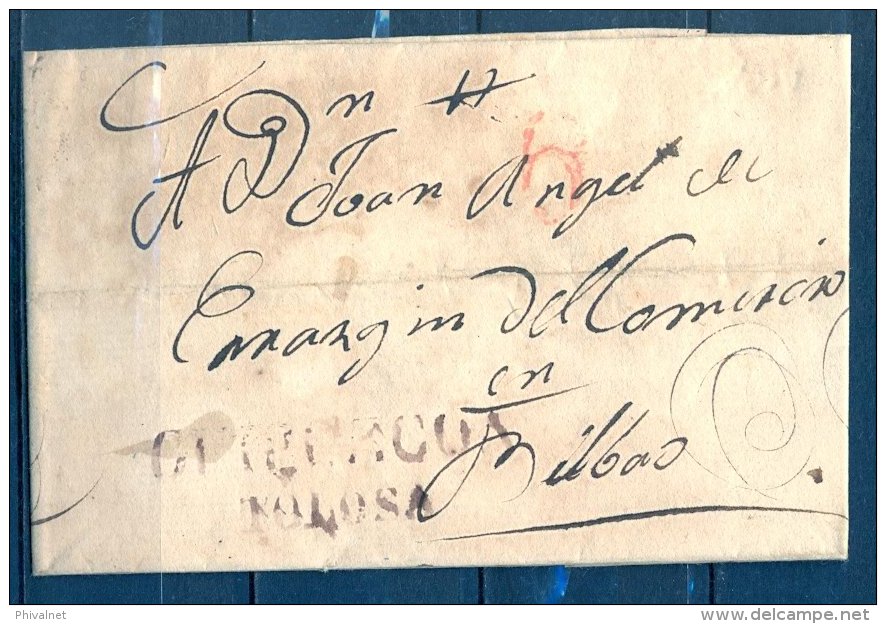 A Dn Joan Angel de
Errazqin del Comercio
en
Bilbao
GUIPUZCOA
TOLOSA
Phivalnet
delcampe.net